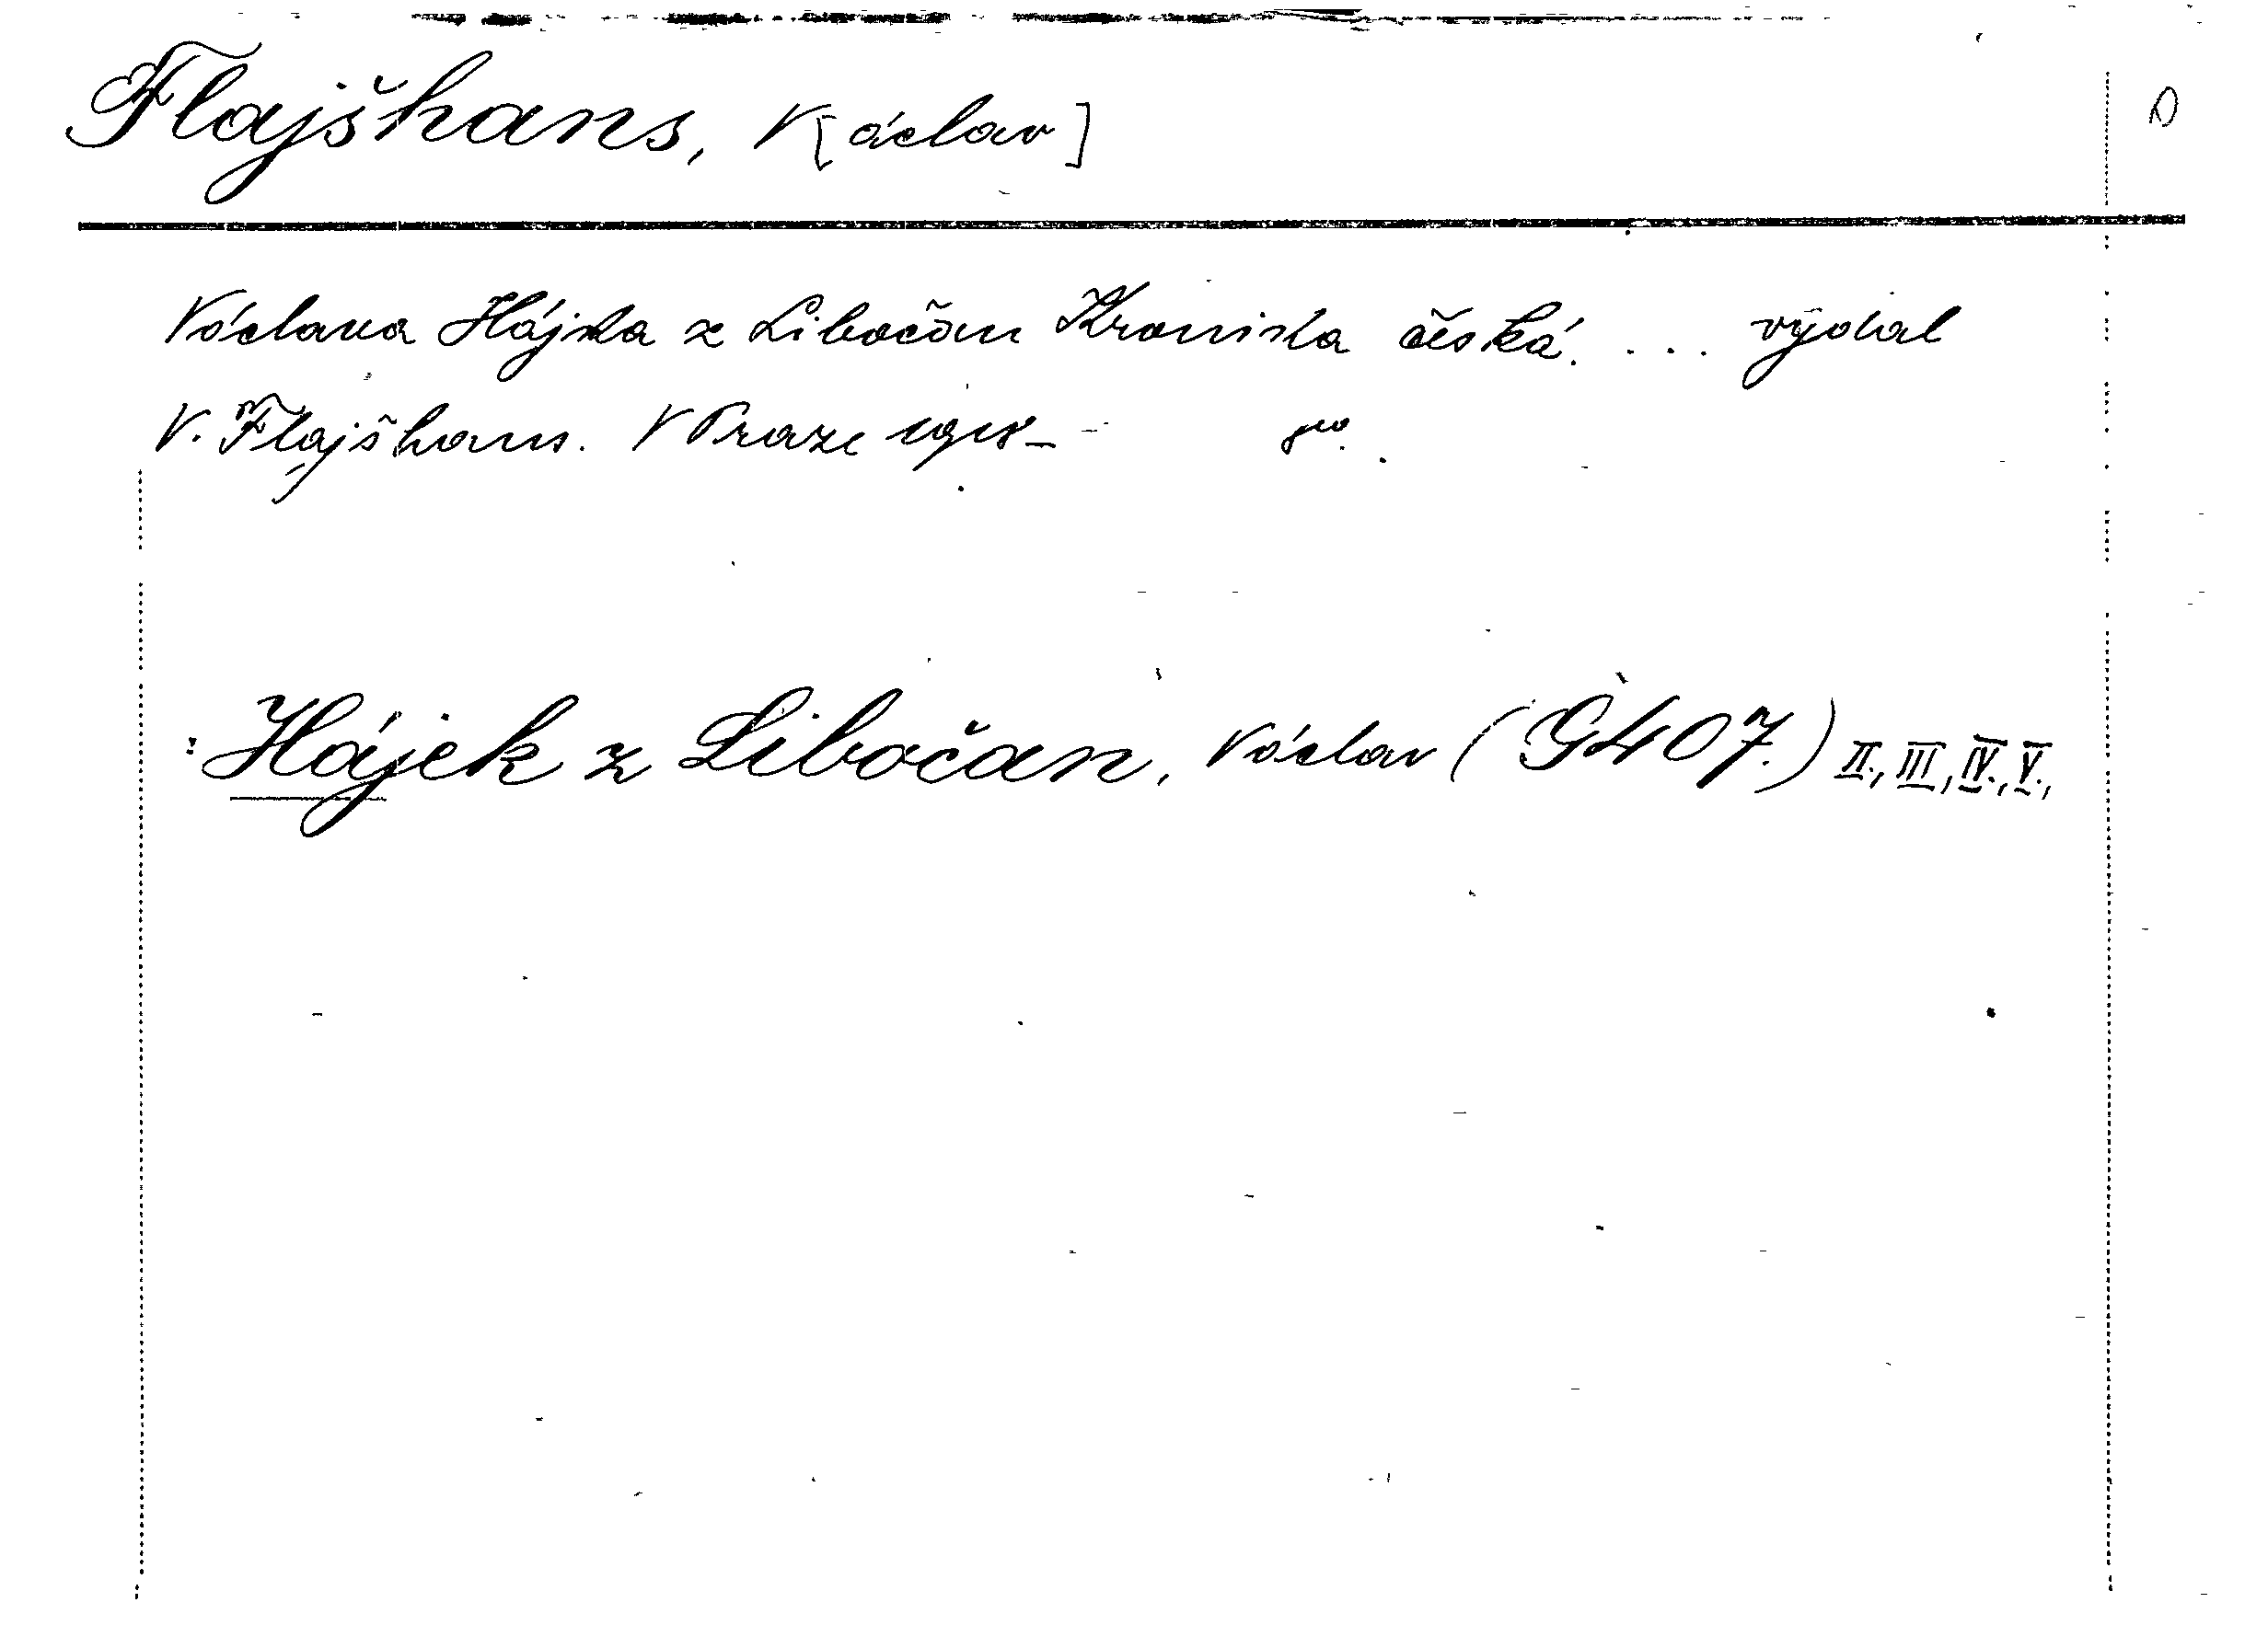 Flajšhans, V[áclav]
D
Václava Hájka z Libočan Kronika česká. ... vydal
V. Flajšhans. V Praze 1918– 8º.
: Hájek z Libočan, Václav (G407.) II., III., IV., V.,